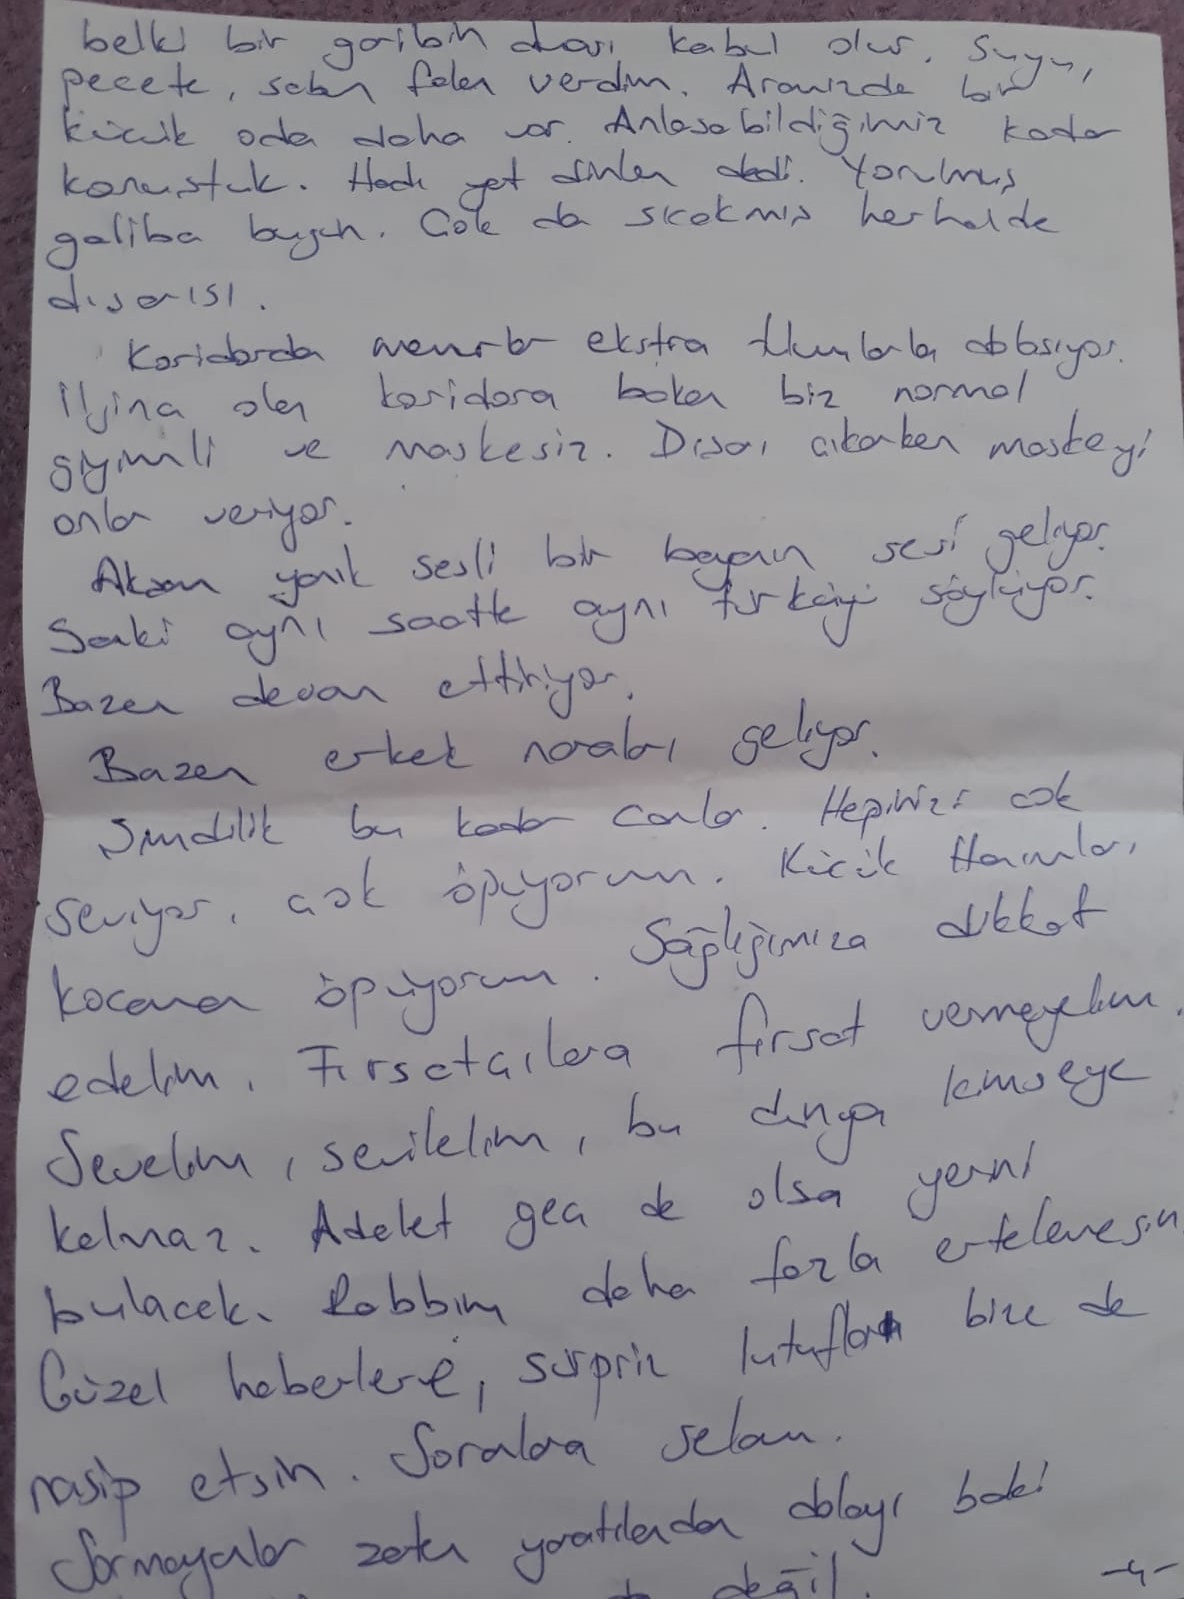 belki bir garibin duası kabul olur. Suyu,
peçete, sabun falan verdim. Aramızda bir
küçük oda daha var. Anlaşabildiğimiz kadar
konuştuk. Hadi yat dinlen dedi. Yorulmuş
galiba bugün. Çok da sıcakmış herhalde
dışarısı.
Koridorda memurlar ekstra tulumlarla dolaşıyor.
İlginç olan koridora bakan biz normal
giyimli ve maskesiz. Dışarı çıkarken maskeyi
onlar veriyor.
Akşam yanık sesli bir bayan sesi geliyor.
Sanki aynı saatte aynı türküyü söylüyor.
Bazen devam ettiriyor.
Bazen erkek naraları geliyor.
Şimdilik bu kadar canlar. Hepinizi çok
seviyor, çok öpüyorum. Küçük Hanımları
kocaman öpüyorum. Sağlığımıza dikkat
edelim. Fırsatçılara fırsat vermeyelim.
Sevelim, sevilelim, bu dünya kimseye
kalmaz. Adalet geç de olsa yerini
bulacak. Rabbim daha fazla ertelemesin
Güzel haberlere, sürpriz lutuflar bize de
nasip etsin. Soranlara selam.
Sormayanlar zaten yaratılandan dolayı baki
değil.
-4-